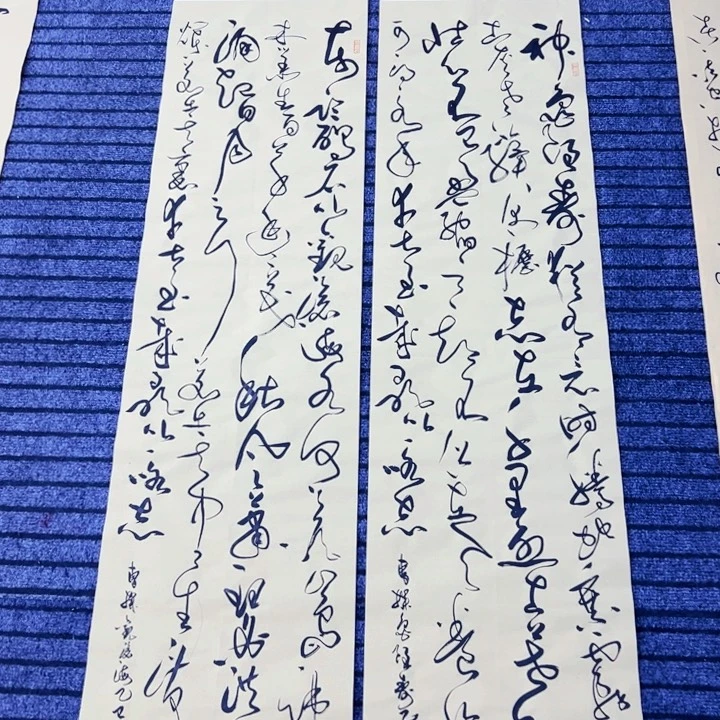 神龜雖壽猶有竟時騰蛇乘霧終
為土灰老驥伏櫪志在千里烈士暮
壯心不已盈縮之期不但在天養怡
可得永年幸甚至哉歌以詠志
曹操龜雖壽
東臨碣石以觀滄海水何澹澹山島竦
木叢生百草豐茂秋風蕭瑟洪
涌起日月之行若出其中星漢
燦爛若出其裏幸甚至哉歌以詠志
曹操觀滄海乙巳